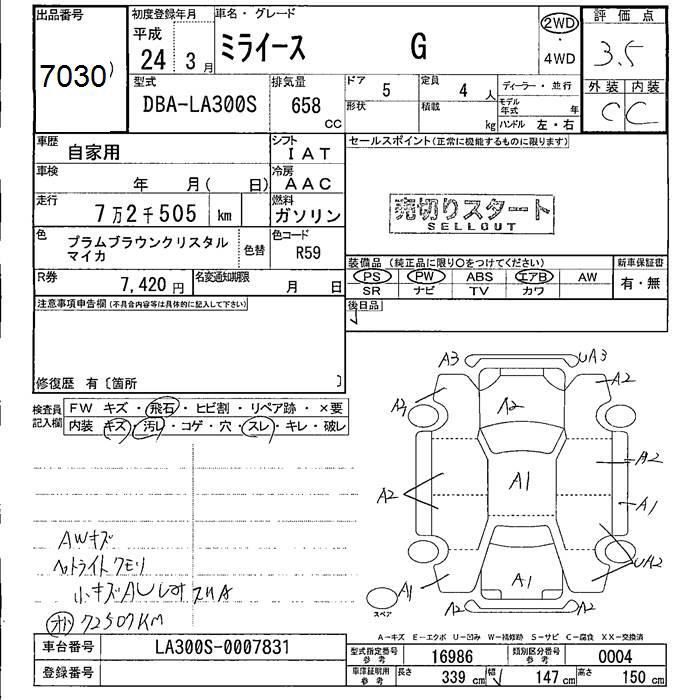 出品番号
7030)
初度登録年月
平成
24 3月
車名・グレード
ミライース G
2WD
・
4WD
評価点
3.5
外装 内装
C C
型式
DBA-LA300S
排気量
658
CC
ドア 5
定員 4人
形状
積載 kg
ディーラー・並行
モデル年式 年
ハンドル 左・右
車歴
自家用
シフト
IAT
車検
年 月( 日)
冷房
AAC
走行
7万2千505 km
燃料
ガソリン
色
プラムブラウンクリスタル
マイカ
色替
色コード
R59
R券
7,420円
名変通知期限
月 日
セールスポイント(正常に機能するものに限ります)
売切りスタート
SELLOUT
装備品 (純正品に限り○をつけてください)
PS PW ABS エアB AW
SR ナビ TV カワ
新車保証書
有・無
後日品
注意事項申告欄(不具合内容等は具体的に記入して下さい)
修復歴 有〔箇所 〕
検査員
記入欄
FW キズ・飛石・ヒビ割・リペア跡・×要
内装 キズ・汚レ・コゲ・穴・スレ・キレ・破レ
AWキズ
ヘットライトクモリ
小キズAU
72507KM
A3 UA3
A2 A2 A2
A2 A1 A2
A1
UA2
A1 A1
A2 A2
スペア
A-キズ E-エクボ U-凹み W-補修跡 S-サビ C-腐食 XX-交換済
車台番号 LA300S-0007831
登録番号
型式指定番号
参考
16986
類別区分番号
参考
0004
車庫証明用
参考
長さ 339 cm
幅 147 cm
高さ 150 cm